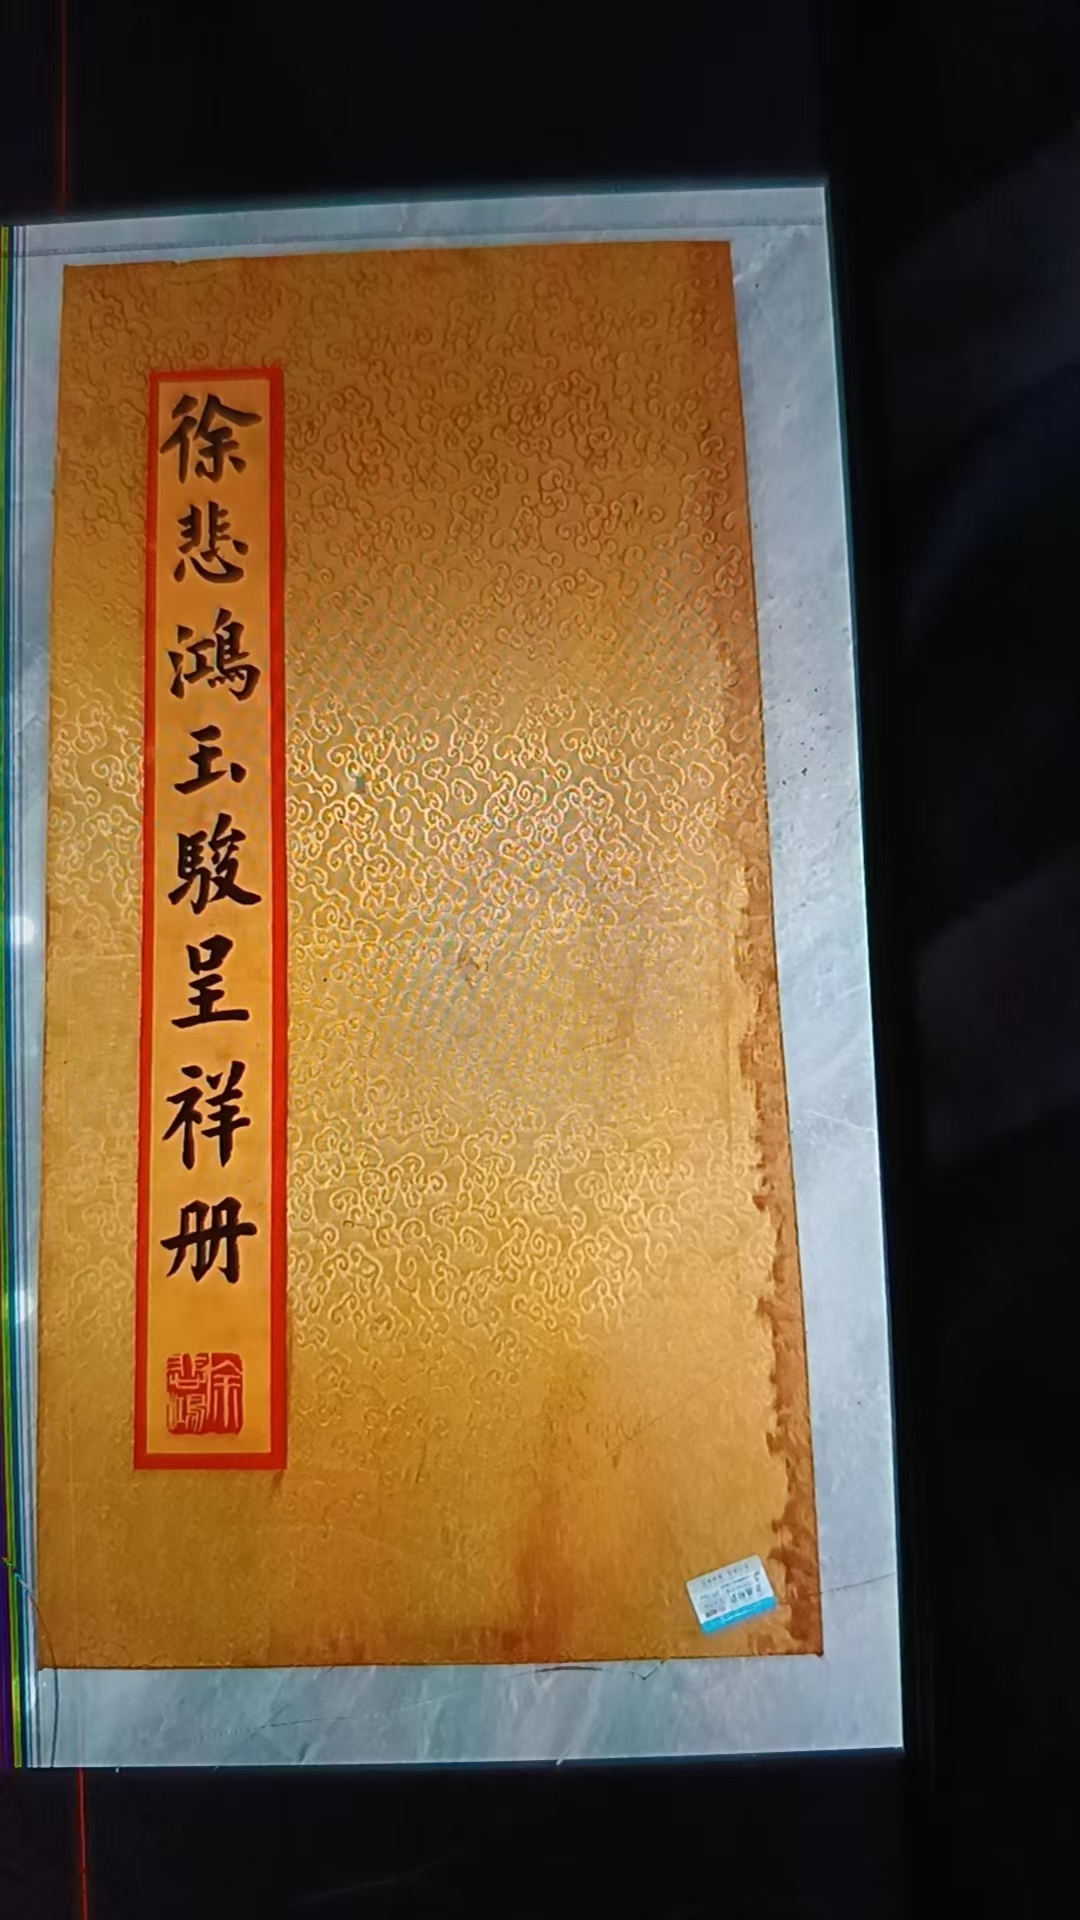 徐悲鸿玉駿呈祥册
徐悲鸿